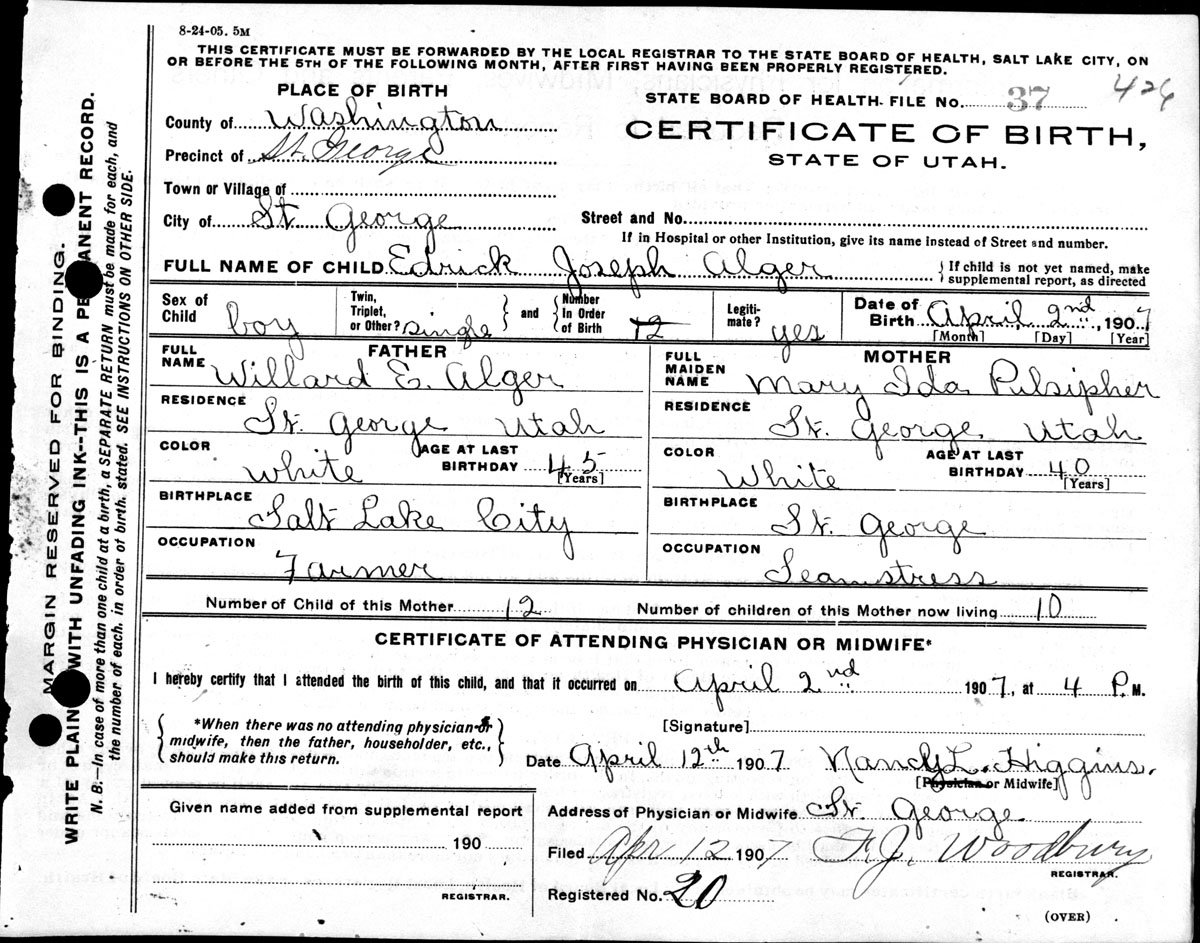 8-24-05. 5M
THIS CERTIFICATE MUST BE FORWARDED BY THE LOCAL REGISTRAR TO THE STATE BOARD OF HEALTH, SALT LAKE CITY, ON
OR BEFORE THE 5TH OF THE FOLLOWING MONTH, AFTER FIRST HAVING BEEN PROPERLY REGISTERED.
426
PLACE OF BIRTH
STATE BOARD OF HEALTH-FILE No. 37
County of Washington
CERTIFICATE OF BIRTH,
Precinct of St. George
STATE OF UTAH.
Town or Village of
City of St George
Street and No.
If in Hospital or other Institution, give its name instead of Street and number.
FULL NAME OF CHILD Edrick Joseph Alger
{If child is not yet named, make
supplemental report, as directed
Sex of Child boy
Twin, Triplet, or Other? single
and
Number In Order of Birth 12
Legiti- mate? yes
Date of Birth April, 2nd, 1907
[Month] [Day] [Year]
FATHER
FULL NAME Willard E. Alger
RESIDENCE
St. George Utah
COLOR white
AGE AT LAST BIRTHDAY 45
[Years]
BIRTHPLACE
Salt Lake City
OCCUPATION
Farmer
MOTHER
FULL MAIDEN NAME Mary Ida Pulsipher
RESIDENCE
St. George Utah
COLOR White
AGE AT LAST BIRTHDAY 40
[Years]
BIRTHPLACE
St. George
OCCUPATION
Seamstress
Number of Child of this Mother 12
Number of children of this Mother now living 10
CERTIFICATE OF ATTENDING PHYSICIAN OR MIDWIFE*
I hereby certify that I attended the birth of this child, and that it occurred on April 2nd 1907, at 4 P. M.
*When there was no attending physician or
midwife, then the father, householder, etc.,
should make this return.
[Signature]
Date April 12th 1907 Nancy L. Higgins.
[Physician or Midwife]
Given name added from supplemental report
190
REGISTRAR.
Address of Physician or Midwife St. George
Filed Apr 12 1907 F. J. Woodbury
REGISTRAR.
Registered No. 20
(OVER)
MARGIN RESERVED FOR BINDING.
WRITE PLAIN WITH UNFADING INK--THIS IS A PE ANENT RECORD.
N. B.—In case of more than one child at a birth, a SEPARATE RETURN must be made for each, and
the number of each, in order of birth, stated. SEE INSTRUCTIONS ON OTHER SIDE.